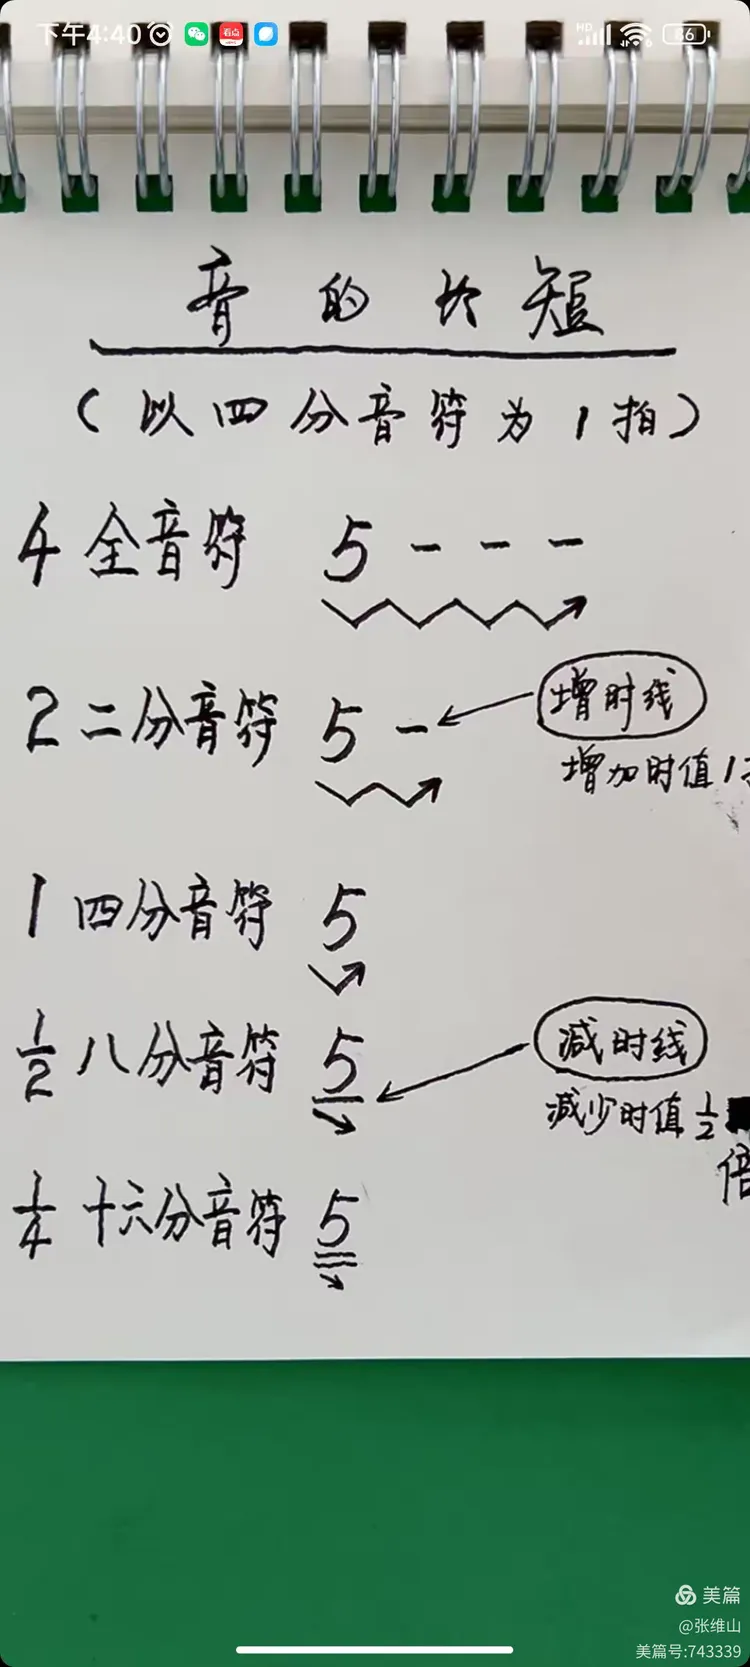 下午4:40
HD
86
音的长短
（以四分音符为1拍）
4 全音符 5 - - -
2 二分音符 5 -
增时线
增加时值1
1 四分音符 5
1/2 八分音符 5
减时线
减少时值1/2
倍
1/4 十六分音符 5
美篇
@张维山
美篇号:743339